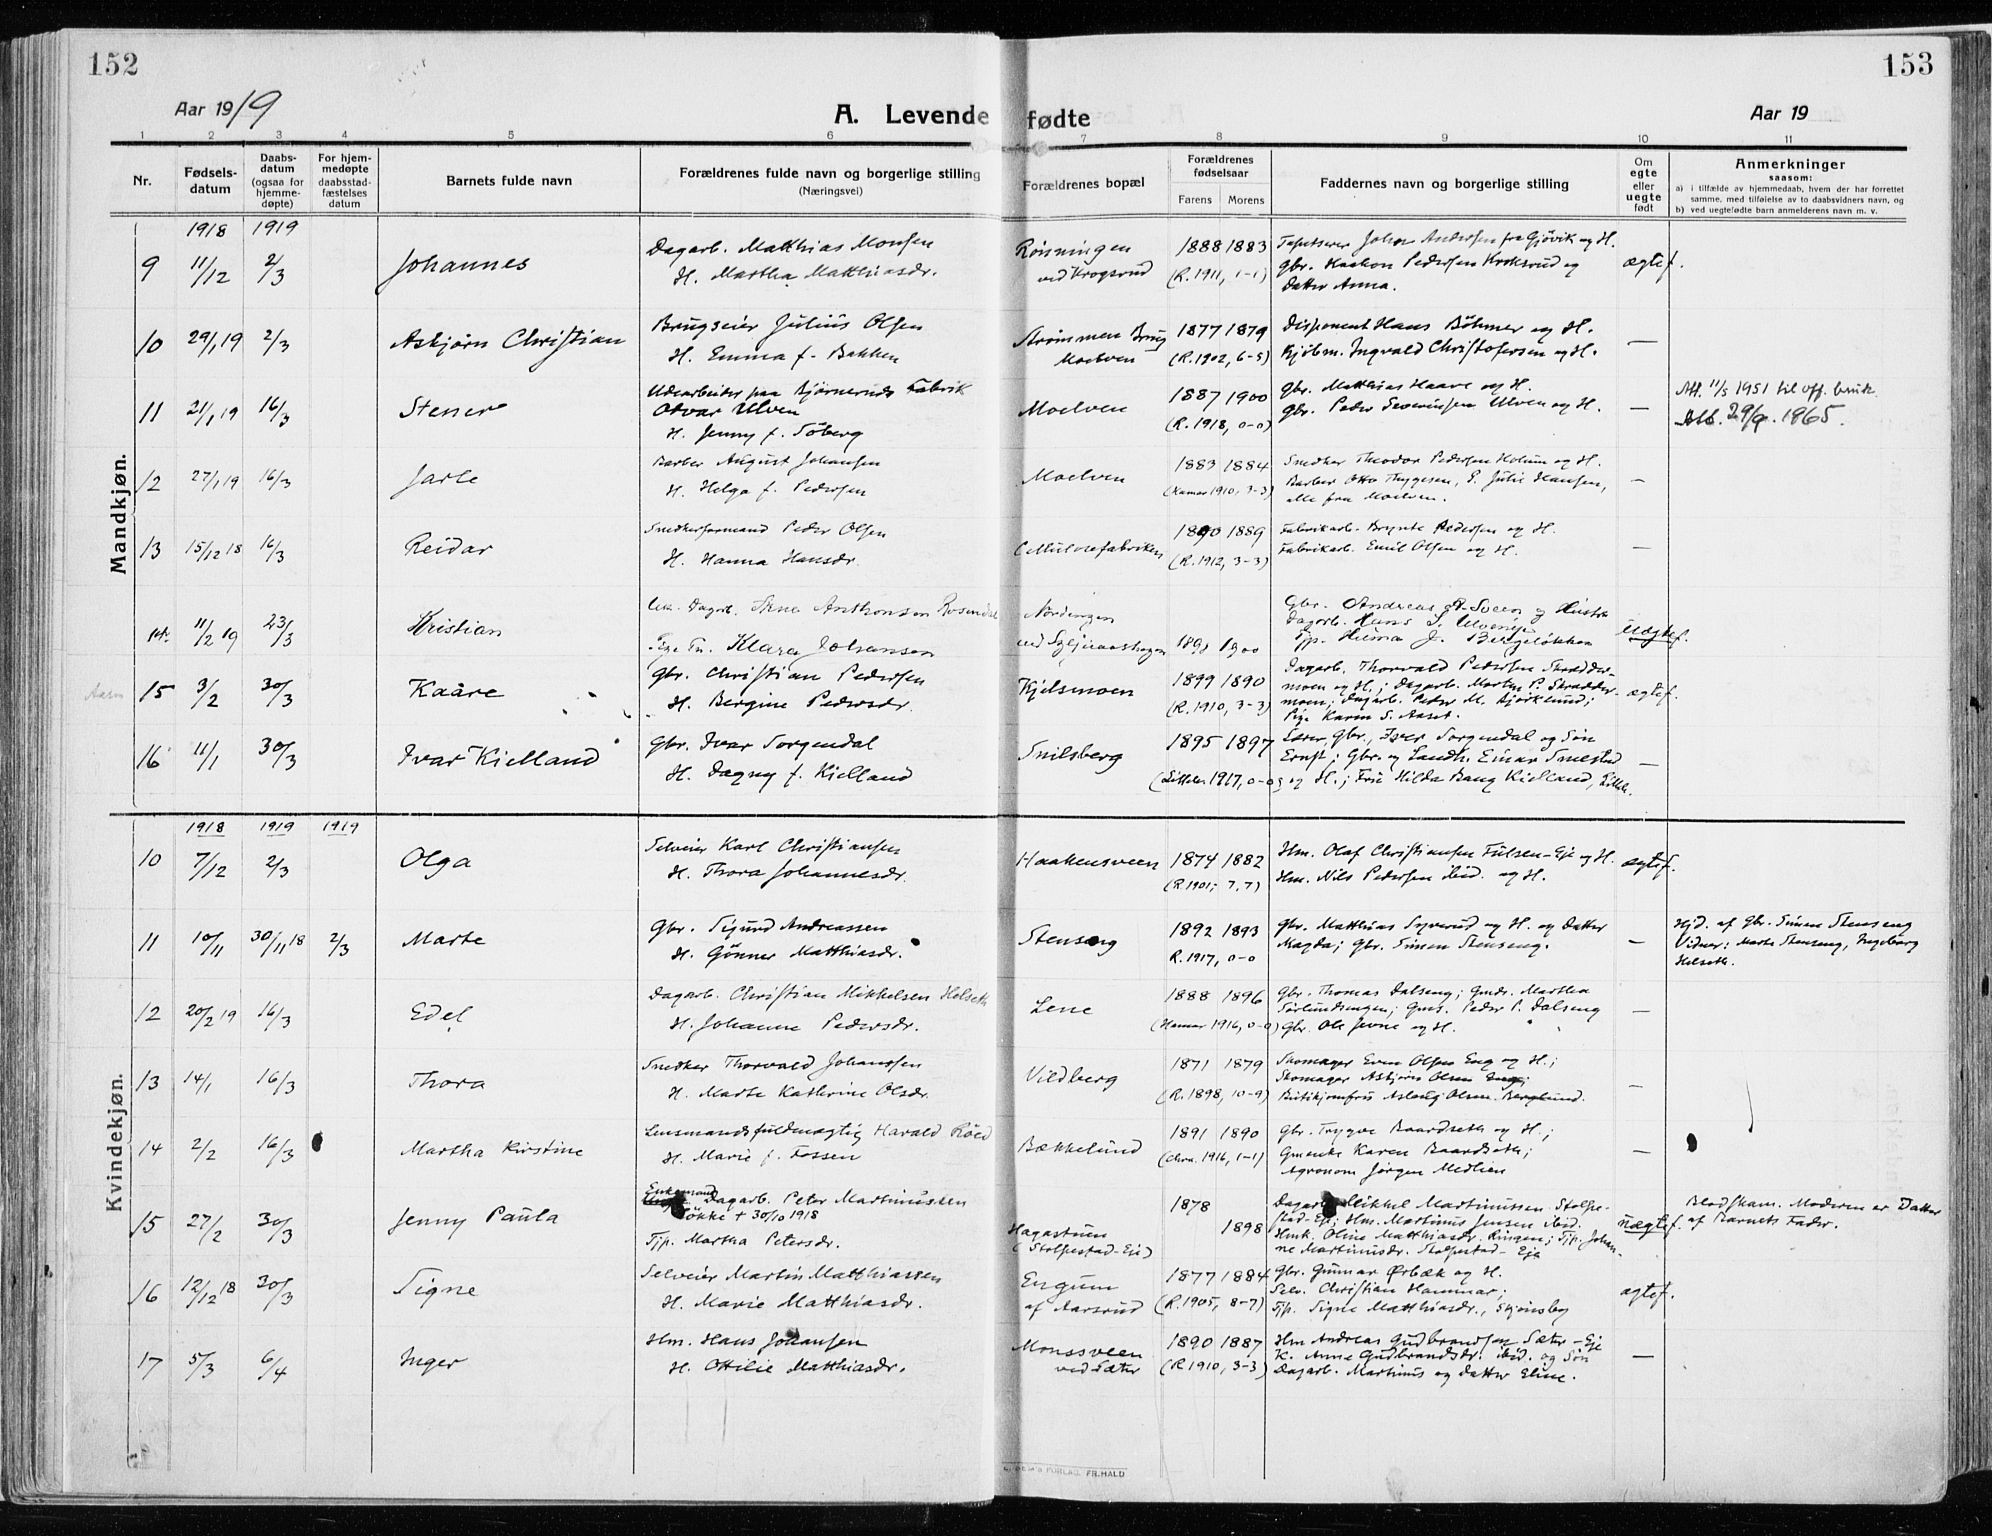 152
153
Aar 1919
A. Levende fødte
Aar 19
1 2 3 4 5 6 7 8 9 10 11
Nr.
Fødsels-
datum
Daabs-
datum
(ogsaa for
hjemme-
døpte)
For hjem-
medøpte
daabsstad-
fæstelses
datum
Barnets fulde navn
Forældrenes fulde navn og borgerlige stilling
(Næringsvei)
Forældrenes bopæl
Forældrenes
fødselsaar
Farens Morens
Faddernes navn og borgerlige stilling
Om
egte
eller
uegte
født
Anmerkninger
saasom:
a) i tilfælde av hjemmedaab, hvem der har forrettet
samme, med tilføielse av to daabsvidners navn, og
b) ved uegtefødte barn anmelderens navn m. v.
Mandkjøn.
1918 1919
9 11/12 2/3 Johannes
Dagarb. Matthias Monsen
H. Martha Matthiasdr.
Rønningen
ved Krogsrud
1888 1883
(R. 1911, 1-1)
Tapetserer Johan Andersen fra Gjøvik og H.
Gbr. Haakon Pedersen Kroksrud og
Datter Anna.
ægtef.
10 29/1 19 2/3 Asbjørn Christian
Brugseier Julius Olsen
H. Emma f. Bakken
Strømmen Brug
Moelven
1877 1879
(R. 1902, 6-5)
Disponent Hans Böhmer og H.
Kjøbm. Ingvald Christofersen og H.
—
11 21/1 19 16/3 Stener
Udearbeider paa Bjørneruds Fabrik
Otvar Ulven
H. Jenny f. Töberg
Moelven
1887 1900
(R. 1918, 0-0)
Gbr. Matthias Haave og H.
Gbr. Peder Severinsen Ulven og H.
—
Att. 11/5 1951 til off. bruk.
Att. 29/9. 1965.
12 27/1 19 16/3 Jarle
Barber August Johansen
H. Helga f. Pedersen
Moelven
1883 1884
(Hamar 1910, 3-3)
Snedker Theodor Pedersen Holum og H.
Barber Otto Thygesen, E. Julie Hansen,
alle fra Moelven.
—
13 15/12 18 16/3 Reidar
Snedkerformand Peder Olsen
H. Hanna Hansdr.
Cellulosefabriken
1890 1889
(R. 1912, 3-3)
Fabrikarb. Brynte Pedersen og H.
Fabrikarb. Emil Olsen og H.
—
14. 11/2 19 23/3 Kristian
Dagarb. Anthonsen Rosendal
Pige Klara Johansen
Nordengen
1900
Gbr. Andreas A. Sveen og Hustru
Dagarb. Hans
Tjp. Helma J. Bergeløkken
Uægtef.
15 3/2 30/3 Kaare
Gbr. Christian Pedersen
H. Bergine Pedersdr.
Kjelsmoen
1899 1890
(R. 1910, 3-3)
Dagarb. Thorvald Pedersen Skrædder-
moen og H.; Dagarb. Morten P. Skrædder-
moen; Dagarb. Peder M. Bjørklund;
Pige Karen S. Aaset.
ægtef.
16 11/1 30/3 Ivar Kielland
Gbr. Ivar Sorgendal
H. Dagny f. Kielland
Snilsberg
1895 1897
(Litleh. 1917, 0-0)
Lærer, Gbr. Iver Sorgendal og Søn
Ernst; Gbr. og Landh. Einar Smestad
og H.; Frk. Hilda Bang Kielland, Lilleh.
—
Kvindekjøn.
1918 1919 1919
10 7/12 2/3 Olga
Selveier Karl Christiansen
H. Thora Johannesdr.
Haakensveen
1874 1882
(R. 1901; 7, 7)
Hm. Olaf Christiansen Fulsen-Eje og H.
Hm. Nils Pedersen ibid. og H.
ægtef.
11 10/11 30/11 18 2/3 Marte
Gbr. Sigurd Andreassen
H. Gönner Matthiasdr.
Stenseng
1892 1893
R. 1917, 0-0
Gbr. Matthias Syverud og H. og Datter
Magda; Gbr. Simen Stenseng.
—
Hjd. af Gbr. Simen Stenseng
Vidner: Marte Stenseng, Ingeborg
Helseth.
12 20/2 19 16/3 Edel
Dagarb. Christian Mikkelsen Helseth
H. Johanne Pedersdr.
Lene
1888 1896
(Hamar 1916, 0-0)
Gbr. Thomas Dalseng; Gmdr. Martha
Sørlundsengen; Gms. Peder P. Dalseng
Gbr. Ole Jevne og H.
—
13 14/1 16/3 Thora
Snedker Thorvald Johansen
H. Marte Kathrine Olsdr.
Vildberg
1871 1879
(R. 1898, 10-9)
Skomager Even Olsen Eng og H.;
Skomager Asbjørn Olsen Eng;
Butikjomfru Aslaug Olsen Berglund.
—
14 2/2 16/3 Martha Kirstine
Lensmandsfuldmægtig Harald Röed
H. Marie f. Fossen
Bækkelund
1891 1890
(Chra. 1916, 1-1)
Gbr. Trygve Baardseth og H.;
Gmenke Karen Baardseth;
Agronom Jørgen Medlien
—
15 27/2 30/3 Jenny Paula
Enkemand Dagarb. Peter Martinussen
Løkke + 30/10 1918
Tjp. Martha Petersdr.
Hagastuen
(Stolpestad-Eie)
1878
1898
Dagarb. Mikkel Martinussen Stolpe-
stad-Eje; Hm. Martinus Jensen ibid.
Hmk. Oline Matthiasdr. Ringen; Tjp. Johan-
ne Martinusdr. Stolpestad-Eje
Uægtef.
Blodskam. Moderen er Datter
af Barnets Fader.
16 12/12 18 30/3 Signe
Selveier Martin Matthiassen
H. Marie Matthiasdr.
Engum
af Aarsrud
1877 1884
(R. 1905, 8-7)
Gbr. Gunnar Ørbæk og H.
Selv. Christian Hammar;
Tjp. Signe Matthiasdr., Skjønsby
ægtef.
17 5/3 6/4 Inger
Hm. Hans Johansen
H. Ottilie Matthiasdr.
Monssveen
ved Sæter
1890 1887
(R. 1910, 3-3)
Hm Andreas Gudbrandsen Sæter-Eje
K. Anne Gudbrandsdr. ibid. og Søn
Dagarb. Martinus og Datter Eline.
—
FORLAG. FR. HALD